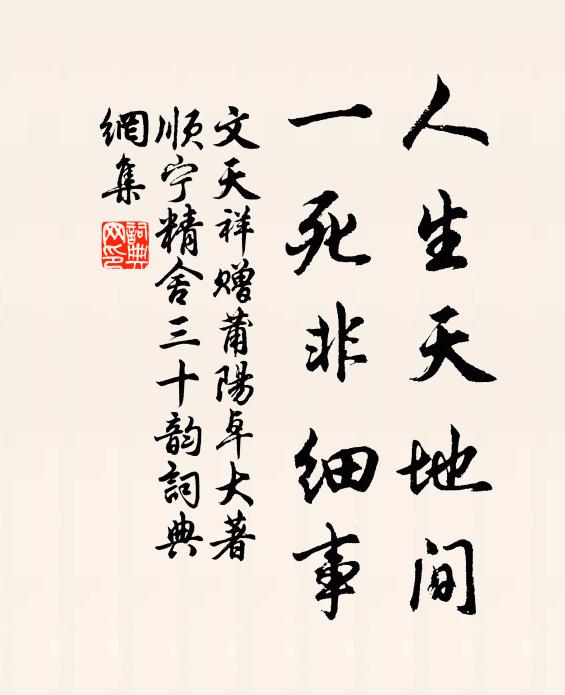 人生天地间
一死非细事
文天祥赠莆陽卓大著
顺宁精舍三十韵詞典
網集
詞典
网印